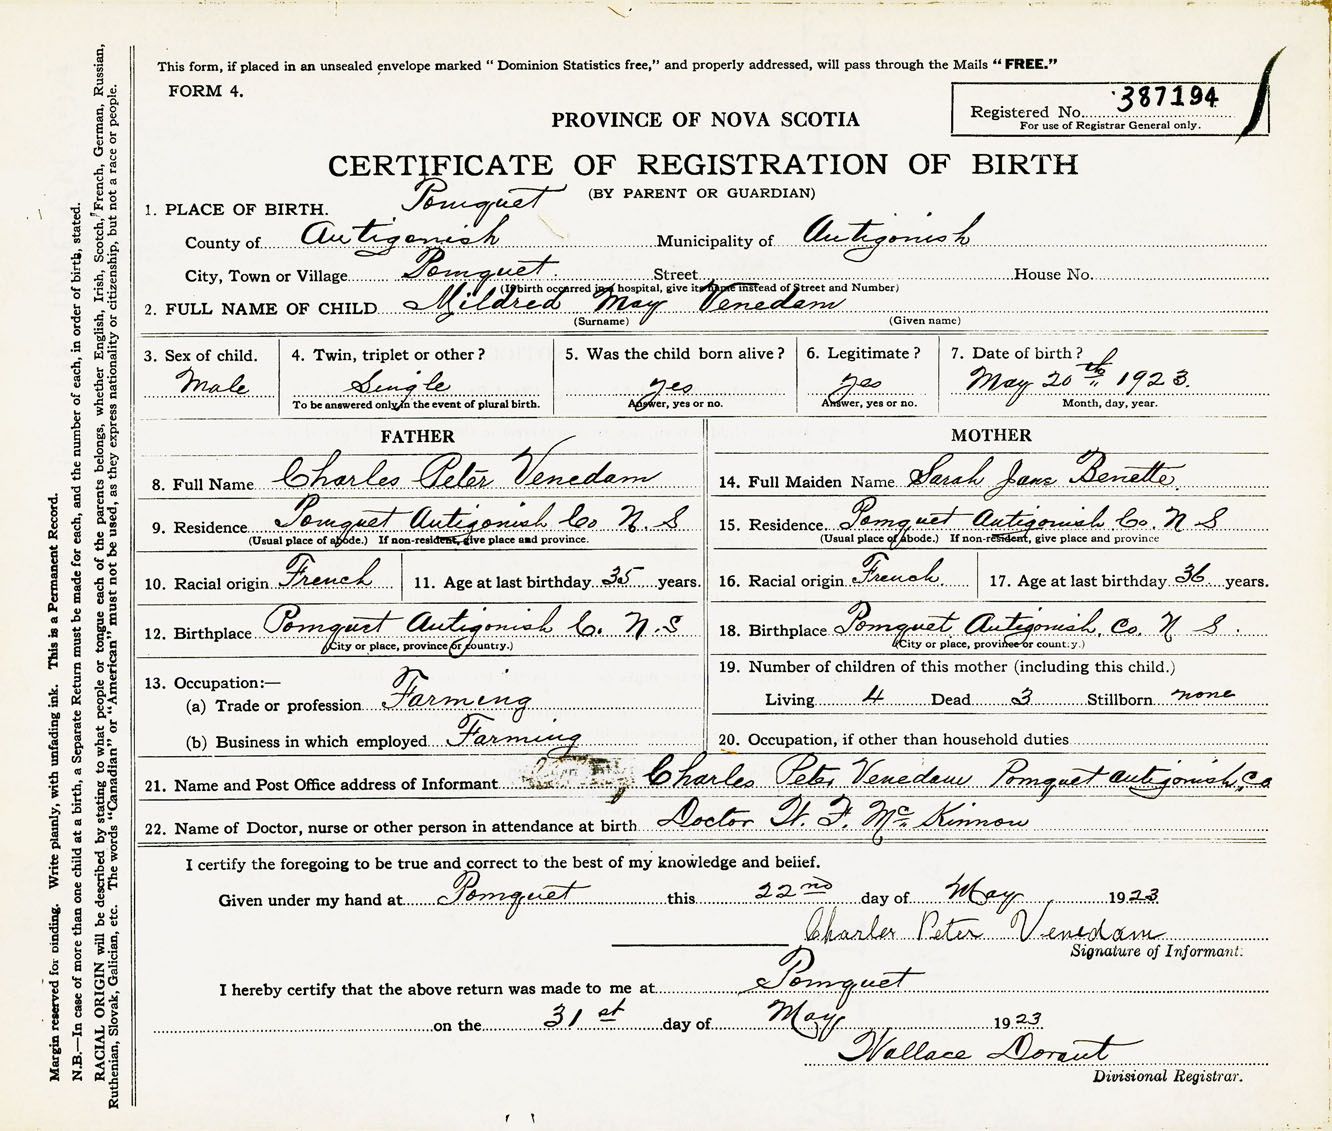 This form, if placed in an unsealed envelope marked "Dominion Statistics free," and properly addressed, will pass through the Mails "FREE."
FORM 4.
Registered No. 387194
For use of Registrar General only.
PROVINCE OF NOVA SCOTIA
CERTIFICATE OF REGISTRATION OF BIRTH
(BY PARENT OR GUARDIAN)
1. PLACE OF BIRTH. Pomquet
County of Antigonish Municipality of Antigonish
City, Town or Village Pomquet Street House No.
(If birth occurred in a hospital, give its name instead of Street and Number)
2. FULL NAME OF CHILD Mildred May Venedam
(Surname) (Given name)
3. Sex of child. 4. Twin, triplet or other? 5. Was the child born alive? 6. Legitimate? 7. Date of birth?
Male Single yes yes May 20th 1923.
To be answered only in the event of plural birth. Answer, yes or no. Answer, yes or no. Month, day, year.
FATHER
8. Full Name Charles Peter Venedam
9. Residence Pomquet Antigonish Co N. S
(Usual place of abode.) If non-resident, give place and province.
10. Racial origin French 11. Age at last birthday 35 years.
12. Birthplace Pomquet Antigonish C. N. S
(City or place, province or country.)
13. Occupation:—
(a) Trade or profession Farming
(b) Business in which employed Farming
MOTHER
14. Full Maiden Name Sarah Jane Benette
15. Residence Pomquet Antigonish Co. N S
(Usual place of abode.) If non-resident, give place and province
16. Racial origin French. 17. Age at last birthday 36 years.
18. Birthplace Pomquet Antigonish. Co. N S.
(City or place, province or country.)
19. Number of children of this mother (including this child.)
Living 4 Dead 3 Stillborn none
20. Occupation, if other than household duties
21. Name and Post Office address of Informant Charles Peter Venedam Pomquet antigonish, Co
22. Name of Doctor, nurse or other person in attendance at birth Doctor W. F. McKinnon
I certify the foregoing to be true and correct to the best of my knowledge and belief.
Given under my hand at Pomquet this 22nd day of May 1923
Charles Peter Venedam
Signature of Informant.
I hereby certify that the above return was made to me at Pomquet
on the 31st day of May 1923
Wallace Dorant
Divisional Registrar.
Margin reserved for binding. Write plainly, with unfading ink. This is a Permanent Record.
N.B.—In case of more than one child at a birth, a Separate Return must be made for each, and the number of each, in order of birth, stated.
RACIAL ORIGIN will be described by stating to what people or tongue each of the parents belongs, whether English, Irish, Scotch, French, German, Russian,
Ruthenian, Slovak, Galician, etc. The words "Canadian" or "American" must not be used, as they express nationality or citizenship, but not a race or people.